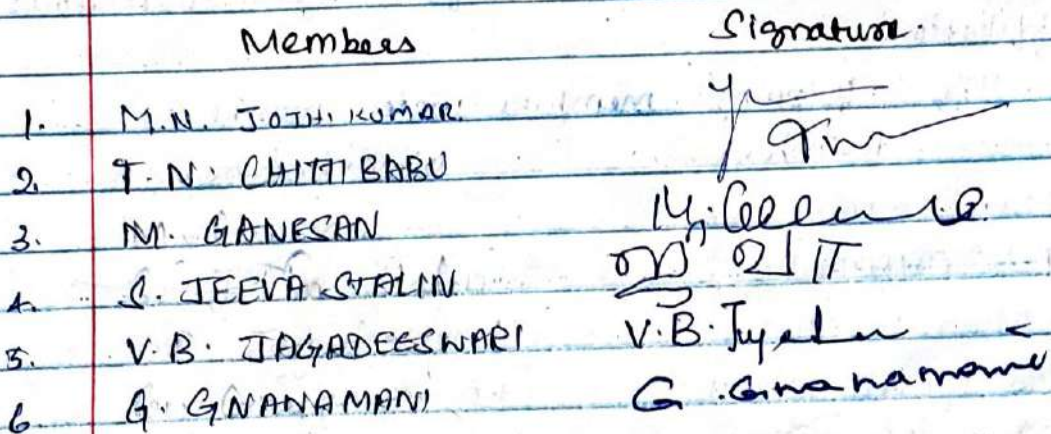 Members Signature.
1. M.N. JOTHI KUMAR
2. T.N. CHITTI BABU
3. M. GANESAN
4. S. JEEVA STALIN
5. V.B. JAGADEESWARI V.B.
6. G. GNANAMANI G. Gnanamani